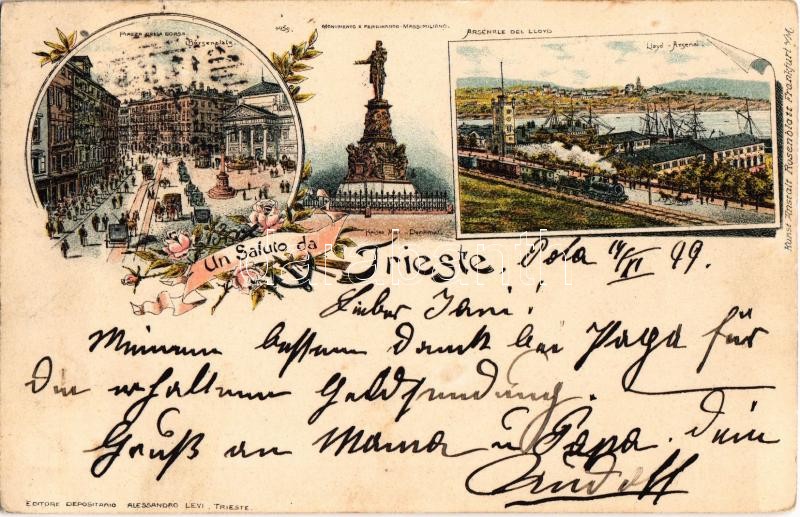 PIAZZA DELLA BORSA.
Börsenplatz.
MONUMENTO E FERDINANDO-MASSIMILIANO.
Kaiser Max - Denkmal.
ARSENALE DEL LLOYD
Lloyd - Arsenal.
Kunst Anstalt Rosenblatt Frankfurt a/M.
Un Saluto da
Trieste.
Pola 14/XI 99.
Lieber Jani!
Meinen besten Dank bei Papa für
die erhaltene Geldsendung.
Gruß an Mama u Papa. Dein
Rudolf
EDITORE DEPOSITARIO ALESSANDRO LEVI, TRIESTE.